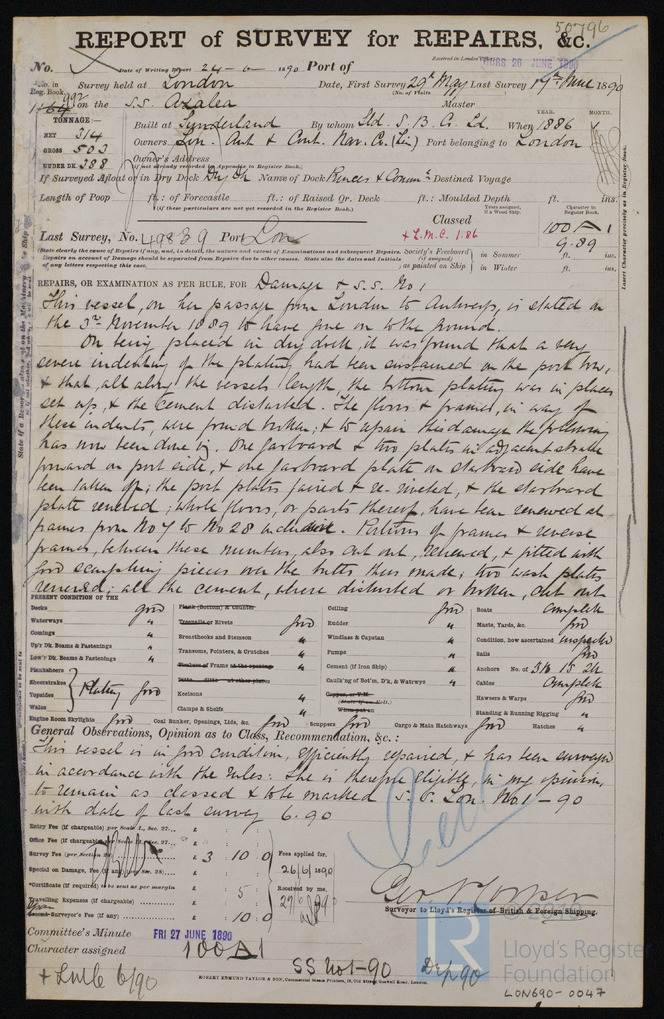 50796
REPORT of SURVEY for REPAIRS, &c.
No. Date of Writing Report 24-6-1890 Port of Received in London THURS 26 JUNE 1890
No. in Reg. Book. Survey held at London Date, First Survey 29th May Last Survey 19th June 1890
on the S.S. Azalea (No. of Visits Master
TONNAGE:— Built at Sunderland By whom Sld. S. B. Co. Ld. When 1886 YEAR. MONTH.
NET 314 Owners Lon. Ant & Cont. Nav. Co. (Lim) Port belonging to London
GROSS 503 Owner's Address
UNDER DK 388 (if not already recorded in Appendix to Register Book.)
If Surveyed Afloat or in Dry Dock Dry Dk Name of Dock Destined Voyage
Length of Poop ft.: of Forecastle ft.: of Raised Qr. Deck ft.: Moulded Depth ft. ins.
(If these particulars are not yet recorded in the Register Book.)
Classed Character in Register Book.
Last Survey, No. 49839 Port Lon + L.M.C. 1.86 100 A 1
9.89
Society's Freeboard (if assigned) as painted on Ship in Summer ft. ins.
in Winter ft. ins.
REPAIRS, OR EXAMINATION AS PER RULE, FOR Damage & S.S. No 1
This vessel, on her passage from London to Antwerp, is stated on
the 3rd November 1889 to have gone on to the ground.
On being placed in dry dock, it was found that a very
severe indenting of the plating had been sustained on the port bow,
& that, all along the vessels length, the bottom plating was in places
set up, & the cement disturbed. The floors & frames, in way of
these indents, were found broken; & to repair this damage the following
has now been done viz. One garboard & two plates in adjacent strake
forward on port side, & one garboard plate on starboard side have
been taken off; the port plates faired & re-riveted, & the starboard
plate renewed; whole floors, or parts thereof, have been renewed at
frames from No 7 to No 28 inclusive. Portions of frames & reverse
frames, between these numbers, also cut out, renewed, & fitted with
good scarphing pieces over the butts thus made; two wash plates
renewed; all the cement, where disturbed or broken, cut out
PRESENT CONDITION OF THE
Decks good Plank (Bottom) & Counter Ceiling good Boats Complete
Waterways " Treenails or Rivets good Rudder " Masts, Yards, &c. good
Comings " Breasthooks and Stemson Windlass & Capstan " Condition, how ascertained inspected
Up'r Dk. Beams & Fastenings " Transoms, Pointers, & Crutches Pumps " Sails good
Low'r Dk. Beams & Fastenings " Timbers of Frame at the openings Cement (if Iron Ship) " Anchors No. of 3B 1S 2K
Planksheers Ditto ditto at other places Caulk'ng of Bot'm, D'k, & Watrwys " Cables Complete
Sheerstrakes Plating good Keelsons " Copper, or Y.M. Hawsers & Warps good
Topsides Clamps & Shelfs Standing & Running Rigging "
Wales When put on
Engine Room Skylights good Coal Bunker, Openings, Lids, &c. good Scuppers good Cargo & Main Hatchways good Hatches "
General Observations, Opinion as to Class, Recommendation, &c.:
This vessel is in good condition, efficiently repaired, & has been surveyed
in accordance with the rules: She is therefore eligible, in my opinion,
to remain as classed & to be marked S.S. Lon. No. 1-90
with date of last survey 6.90
Entry Fee (if chargeable) per Scale I., Sec. 27... £
Office Fee (if chargeable) per Sec. 27... £
Survey Fee (per Section 28) £ 3 10 0 Fees applied for,
Special on Damage, Fee (if any) £ 26/6/1890
*Certificate (if required) to be sent as per margin £ 5 Received by me,
Travelling Expenses (if chargeable) £
Second Surveyor's Fee (if any) £ 10.0
Surveyor to Lloyd's Register of British & Foreign Shipping.
Committee's Minute FRI 27 JUNE 1890
Character assigned 100A1
+ LMC 6/90 SS No 1-90
ROBERT EDMUND TAYLOR & SON, Commercial Steam Printers, 19, Old Street, Goswell Road, London.
© 2019
LR
Lloyd's Register
Foundation
LON690-0047